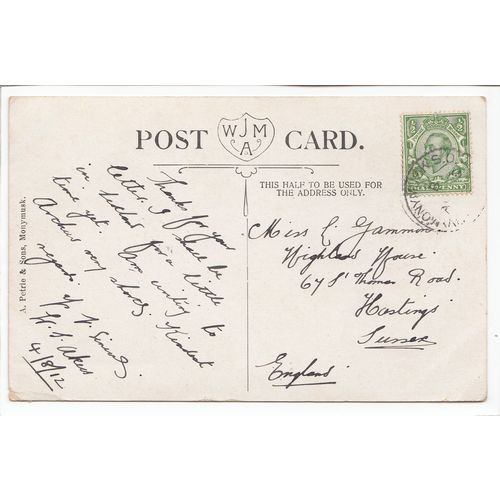 POST CARD.
W J M
A
THIS HALF TO BE USED FOR
THE ADDRESS ONLY.
A. Petrie & Sons, Monymusk.
HALFPENNY
Thanks for your
letter. I shall be
in for a little
time yet. Am writing to
very shortly
Kindest
regards
4/8/12
Miss E. Gammon
Highland House
67 St Thomas Road.
Hastings
Sussex
England